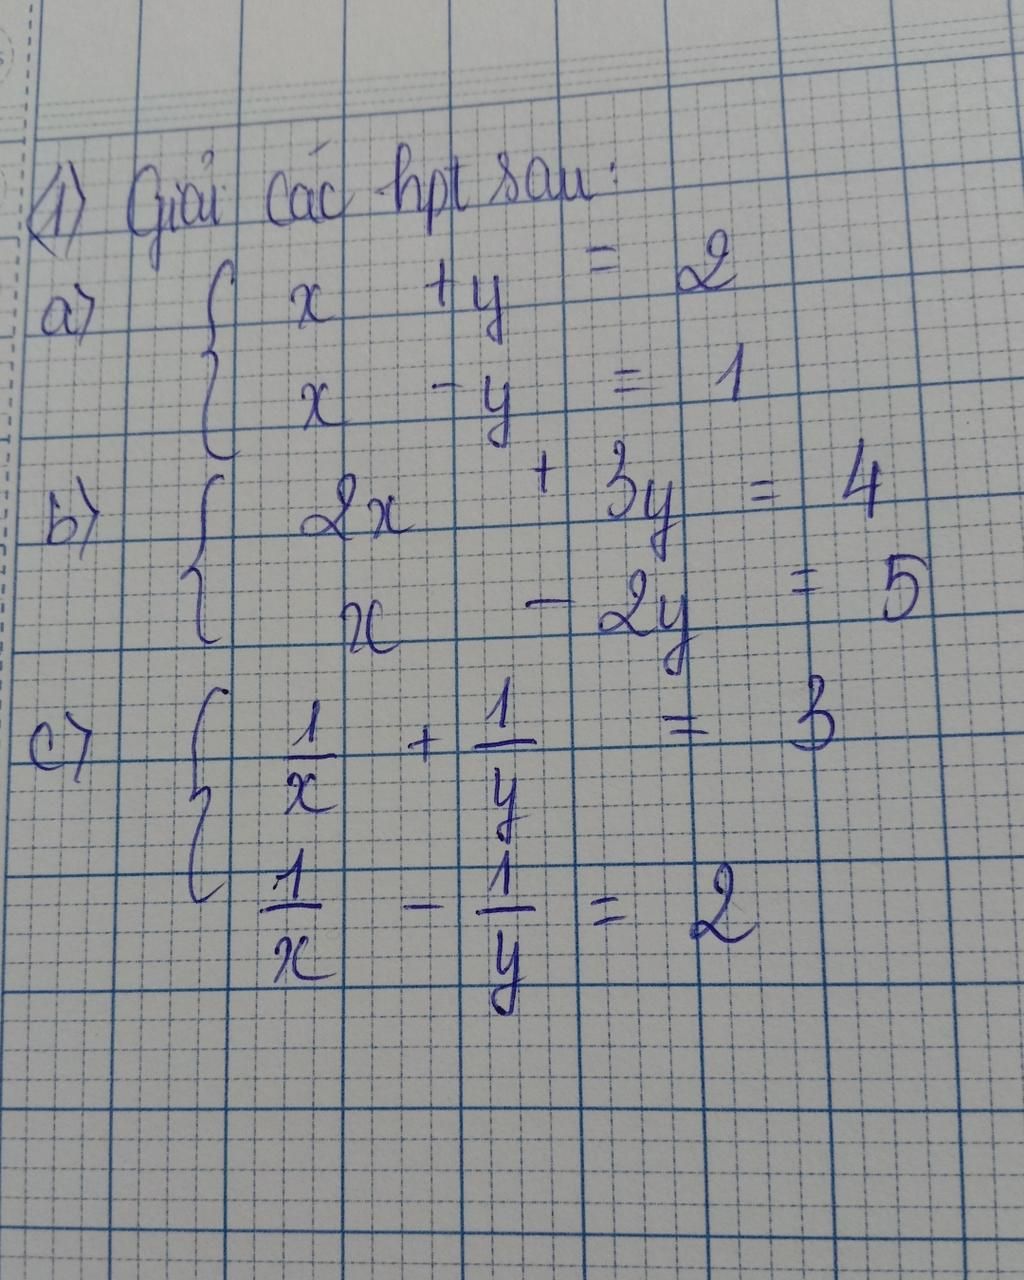 1) Giải các hpt sau:
a) { x + y = 2
x - y = 1
b) { 2x + 3y = 4
x - 2y = 5
c) { 1/x + 1/y = 3
1/x - 1/y = 2